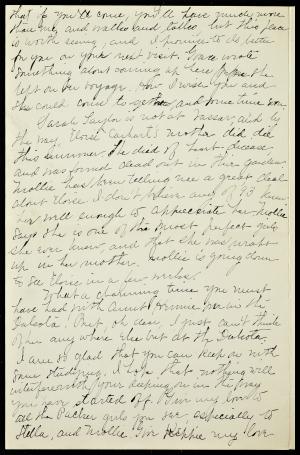 that if you'll come, you'll have much more
than me, and walks and talks, but this place
is worth seeing, and I promise to do better
for you on your next visit. Grace wrote
something about coming up here before she
left on her voyage. Oh, I wish you and
she could come together, and some time soon.
Sarah Taylor is not at Vassar, and by
the way, Eloise Earhart's mother did die
this summer. She died of heart disease
and was found dead out in the garden.
Mollie has been telling me a great deal
about Eloise. I don't believe any of '93 knew
her well enough to appreciate her. Mollie
says she is one of the most perfect girls
she ever knew, and that she was wrapt
up in her mother. Mollie is going down
to see Eloise in a few weeks.
What a charming time you must
have had with Aunt Fannie
But, oh dear, I just can't think
of her any where else but at the
I am so glad that you can keep on with
your studying. I hope that nothing will
interfere with your keeping on in the way
you have started off. Give my love to
all the Packer girls you see, especially to
Stella, and Mollie. Give my love